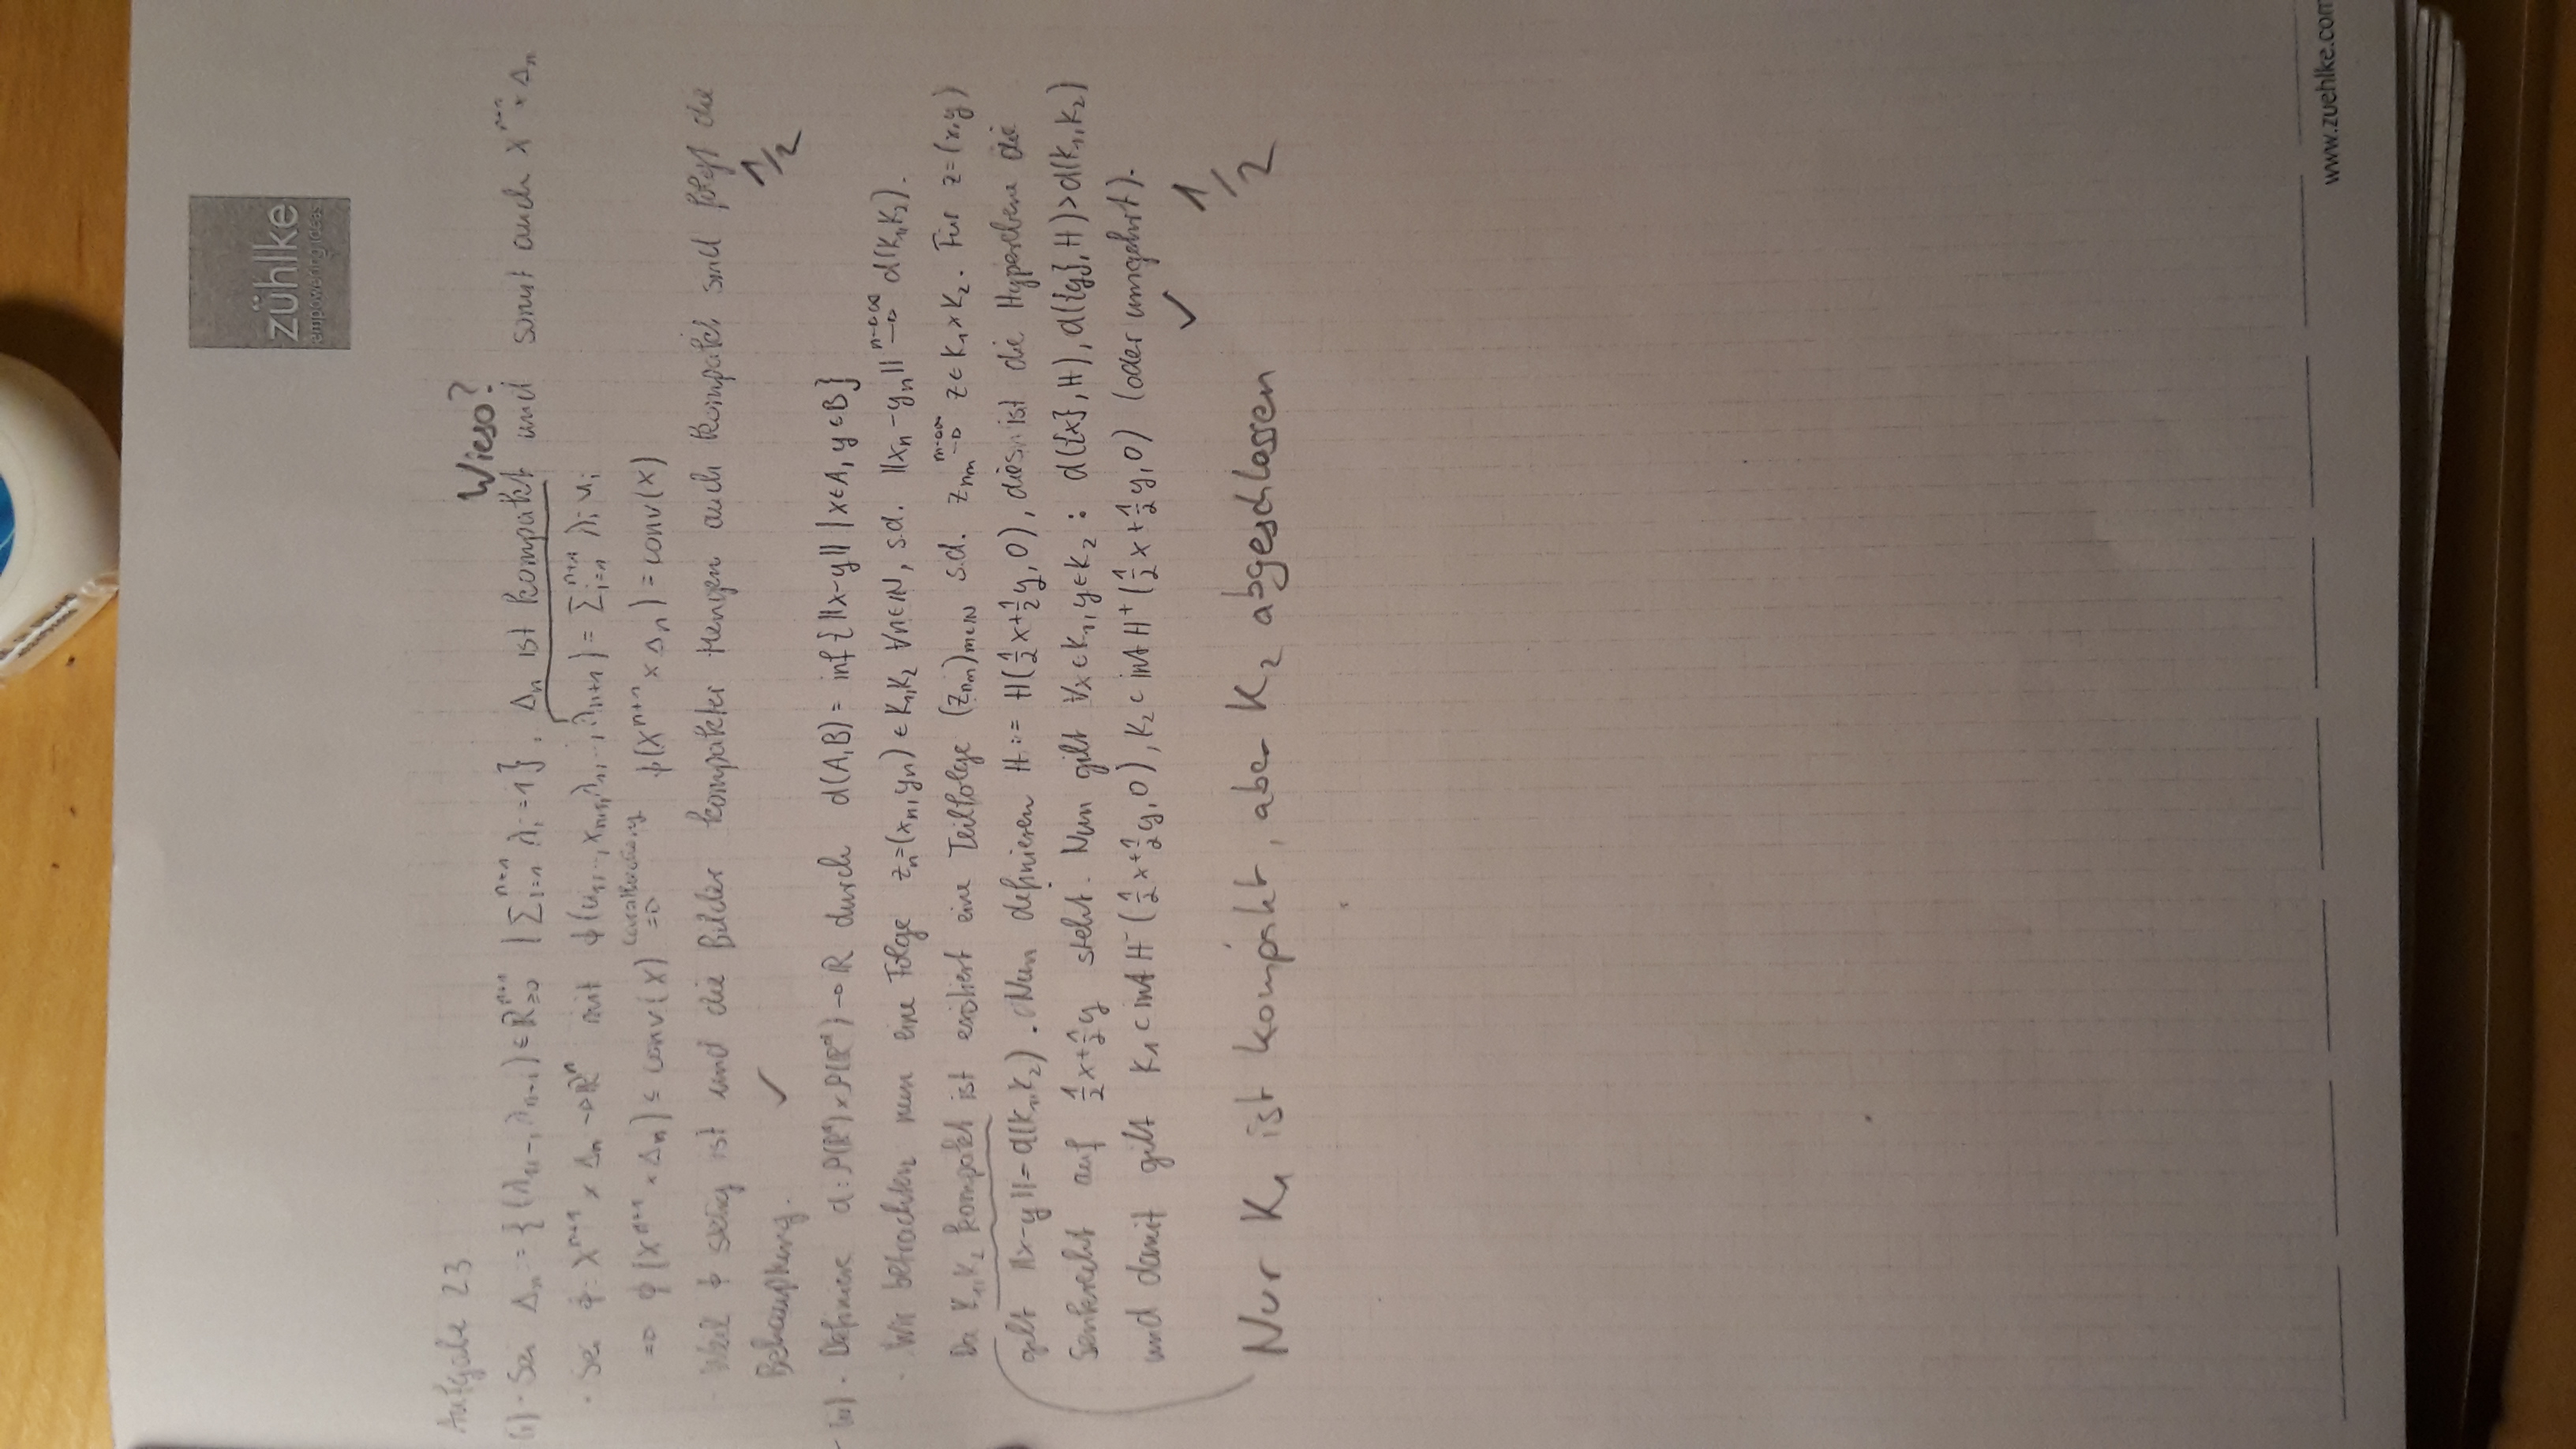 zühlke
empowering ideas
Aufgabe 23
Wieso?
(i) · Sei Δₙ := {(λ₁,…,λₙ₊₁) ∈ ℝ≥₀ⁿ⁺¹ | Σᵢ₌₁ⁿ⁺¹ λᵢ = 1}. Δₙ ist kompakt und somit auch Xⁿ⁺¹ × Δₙ
· Sei ϕ: Xⁿ⁺¹ × Δₙ → ℝⁿ mit ϕ(x₁,…,xₙ₊₁,λ₁,…,λₙ₊₁) = Σᵢ₌₁ⁿ⁺¹ λᵢ xᵢ
⇒ ϕ(Xⁿ⁺¹ × Δₙ) ⊆ conv(X) ⇒ ϕ(Xⁿ⁺¹ × Δₙ) = conv(X)
Weil ϕ stetig ist und die Bilder kompakter Mengen auch kompakt sind folgt die
Behauptung. ✓ 1/2
· Definiere d: P(ℝᵈ) × P(ℝᵈ) → ℝ durch d(A,B) = inf{||x-y|| | x∈A, y∈B}
· Wir betrachten nun eine Folge zₙ=(xₙ,yₙ) ∈ K₁,K₂ ∀n∈ℕ, s.d. ||xₙ-yₙ|| →(n→∞) d(K₁,K₂).
Da K₁,K₂ kompakt ist existiert eine Teilfolge (z_{n_m})_{m∈ℕ} s.d. z_{n_m} →(m→∞) z ∈ K₁×K₂. Für z=(x,y)
gilt ||x-y||=d(K₁,K₂). Nun definieren H := H(½x+½y,0), dies ist die Hyperebene die
Senkrecht auf ½x+½y steht. Nun gilt ∀x∈K₁,y∈K₂: d({x},H), d({y},H)>d(K₁,K₂)
und damit gilt K₁⊂int H⁻(½x+½y,0), K₂⊂int H⁺(½x+½y,0) (oder umgehrt).
✓ 1/2
Nur K₁ ist kompakt, aber K₂ abgeschlossen
www.zuehlke.com